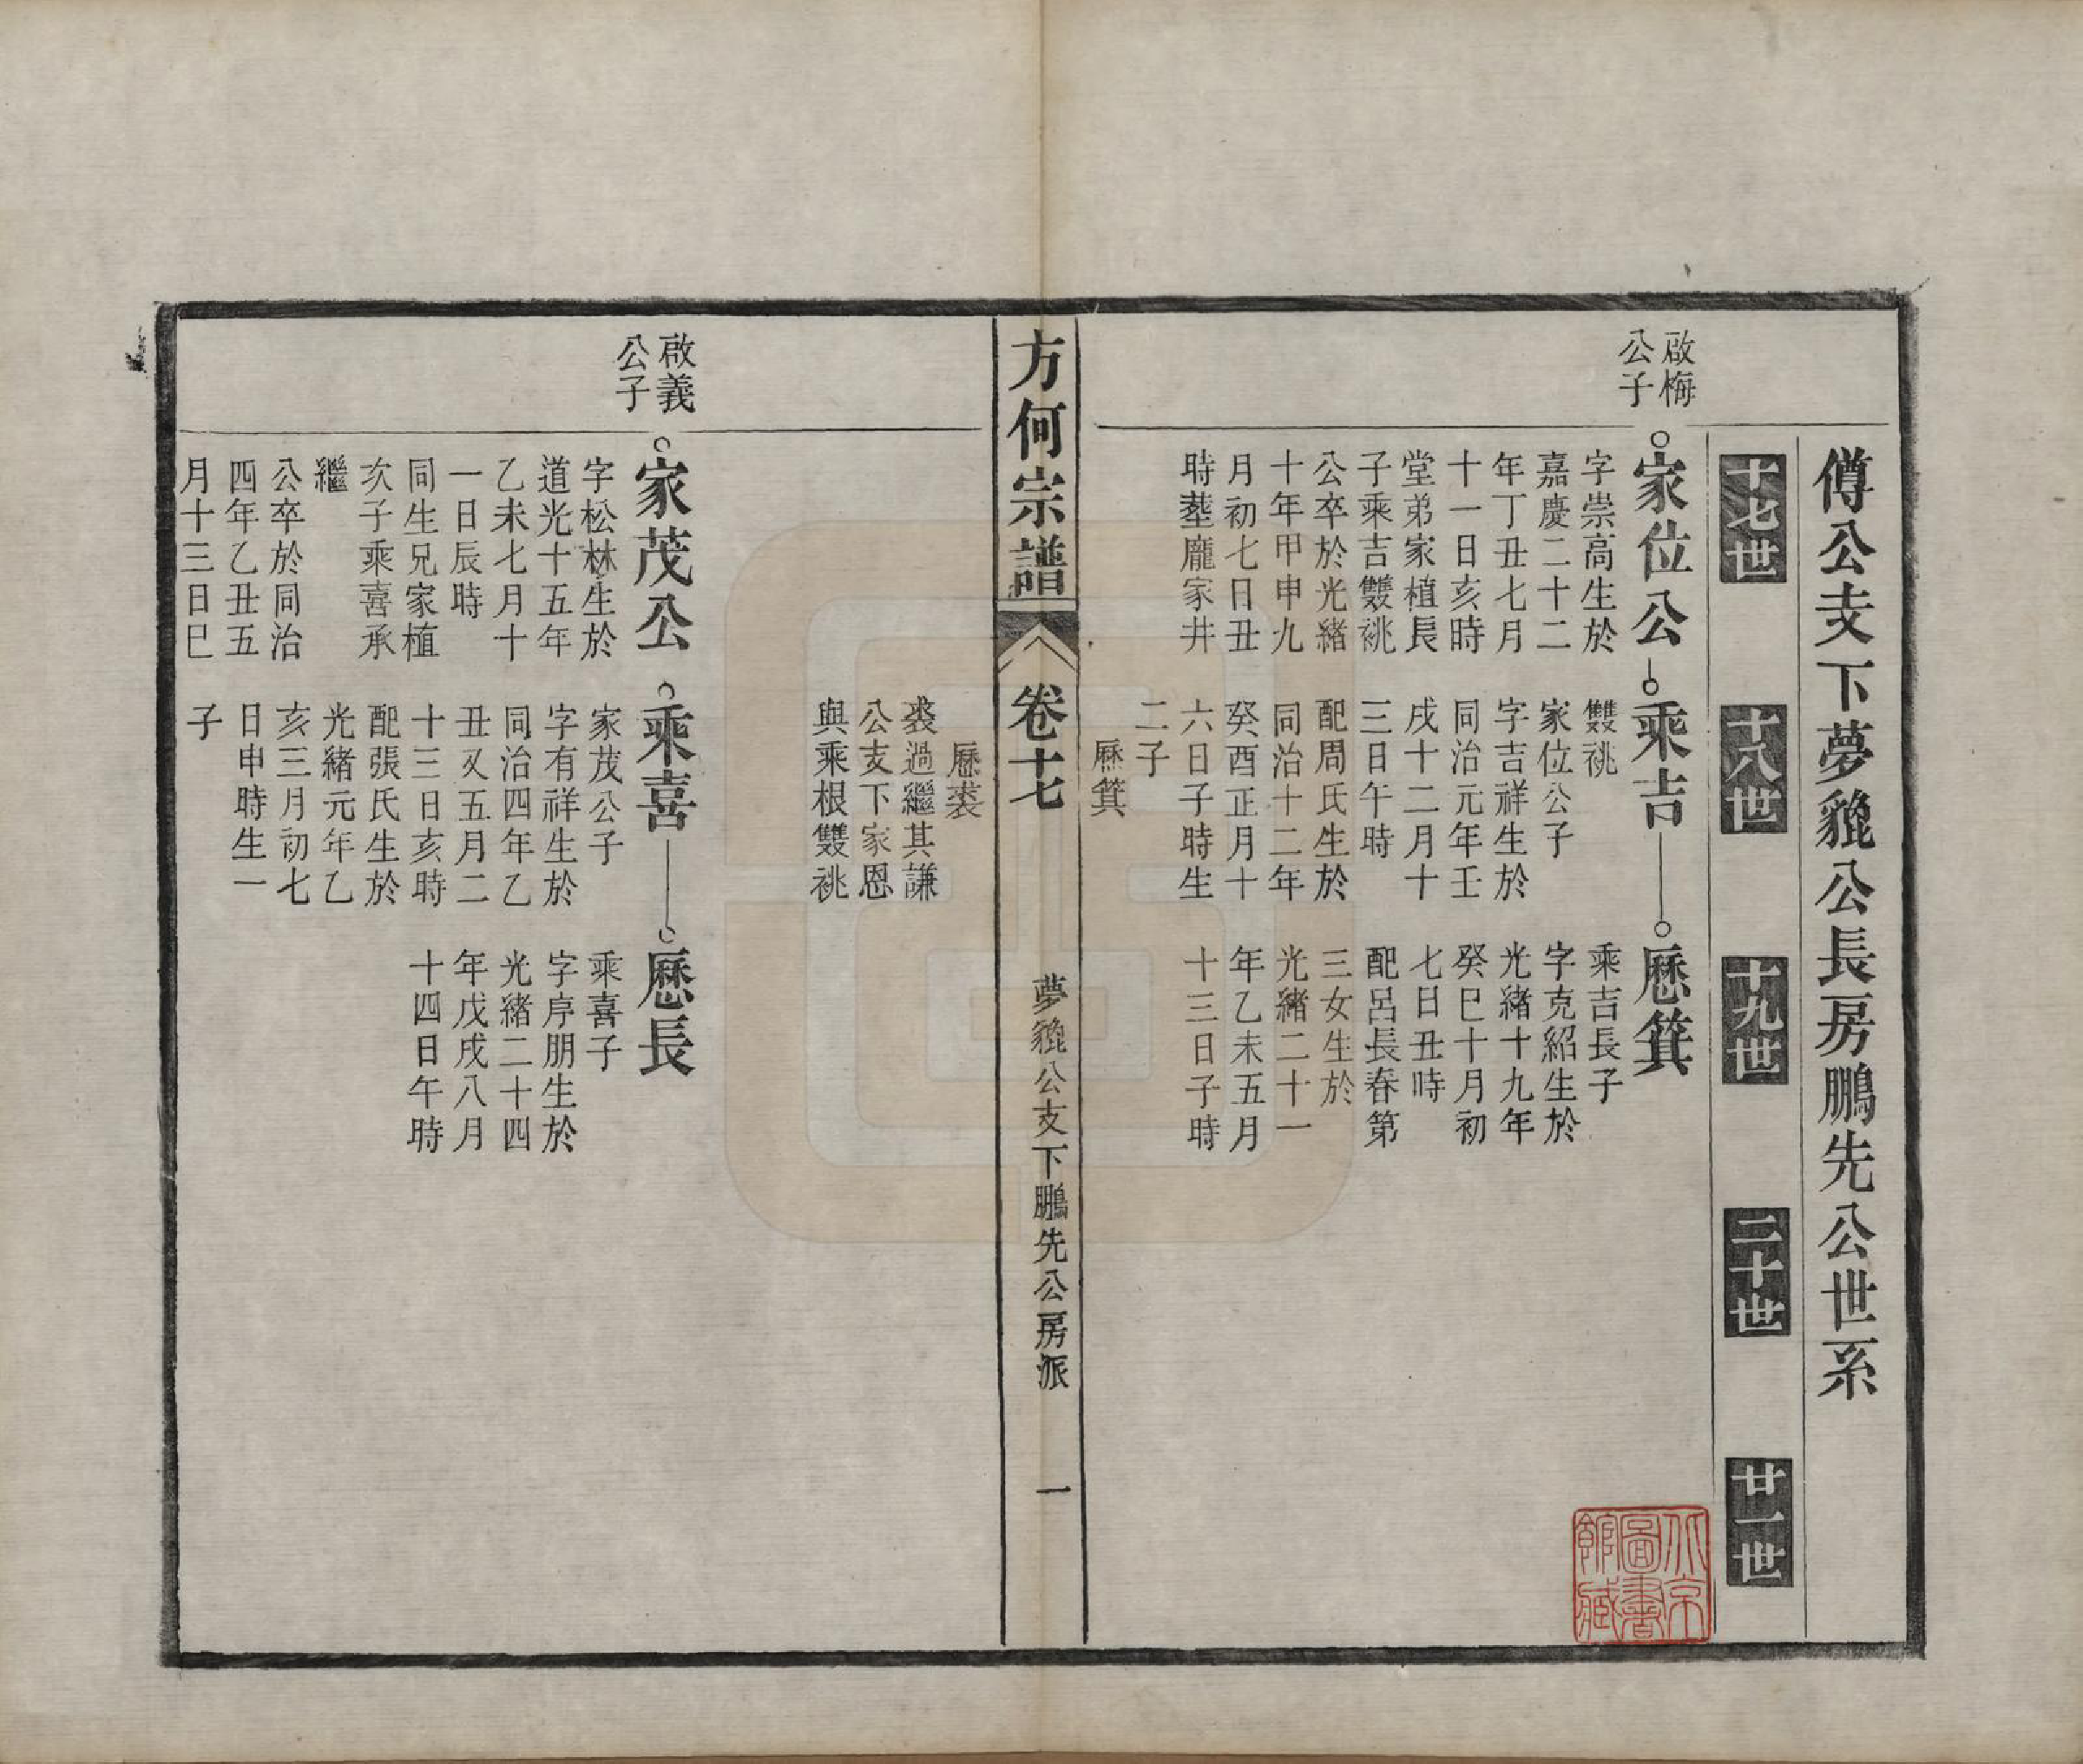 僔公支下夢貔公長房鵬先公世系
十七世
十八世
十九世
二十世
廿一世
啟梅
公子
家位公
字崇高生於
嘉慶二十二
年丁丑七月
十一日亥時
堂弟家植長
子乘吉雙祧
公卒於光緒
十年甲申九
月初七日丑
時塟龐家井
乘吉
雙祧
家位公子
字吉祥生於
同治元年壬
戌十二月十
三日午時
配周氏生於
同治十二年
癸酉正月十
六日子時生
二子
歷箕
歷箕
乘吉長子
字克紹生於
光緒十九年
癸巳十月初
七日丑時
配呂長春第
三女生於
光緒二十一
年乙未五月
十三日子時
方何宗譜
卷十七
夢貔公支下鵬先公房派
一
歷裘
裘過繼其謙
公支下家恩
與乘根雙祧
啟義
公子
家茂公
字松林生於
道光十五年
乙未七月十
一日辰時
同生兄家植
次子乘喜承
繼
公卒於同治
四年乙丑五
月十三日巳
乘喜
家茂公子
字有祥生於
同治四年乙
丑又五月二
十三日亥時
配張氏生於
光緒元年乙
亥三月初七
日申時生一
子
歷長
乘喜子
字序朋生於
光緒二十四
年戊戌八月
十四日午時
北京
圖書
館藏